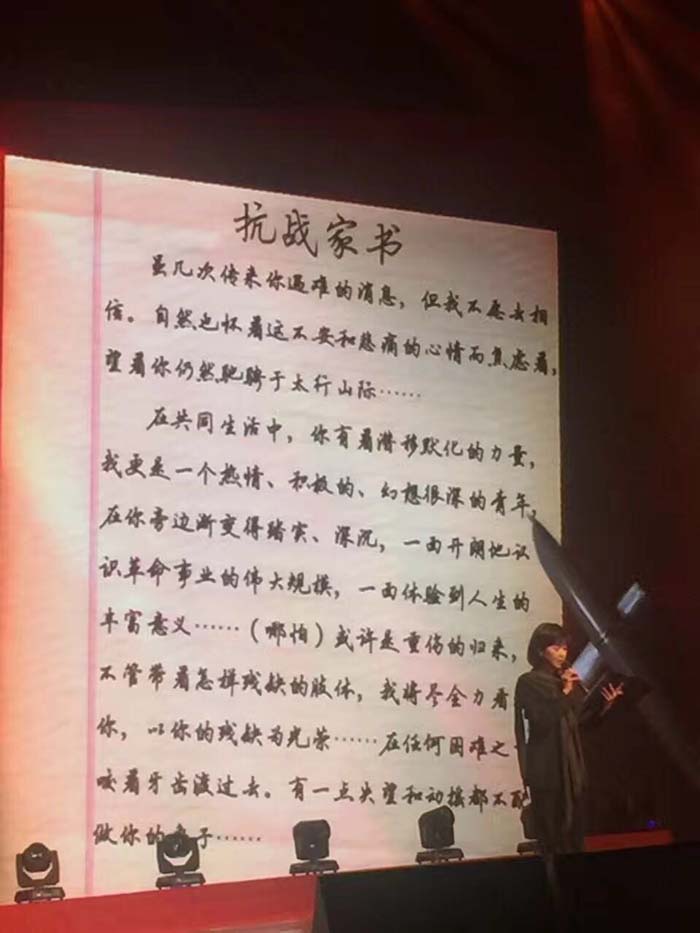 抗战家书
虽几次传来你遇难的消息，但我不愿去相
信。自然也怀着这不安和悲痛的心情而焦虑着，
望着你仍然驰骋于太行山际……
在共同生活中，你有着潜移默化的力量，
我更是一个热情、积极的、幻想很深的青年，
在你旁边渐变得踏实、深沉，一面开朗地认
识革命事业的伟大规模，一面体验到人生的
丰富意义……（哪怕）或许是重伤的归来，
不管带着怎样残缺的肢体，我将尽全力看
你，以你的残缺为光荣……在任何困难之
咬着牙齿渡过去。有一点失望和动摇都不配
做你的妻子……